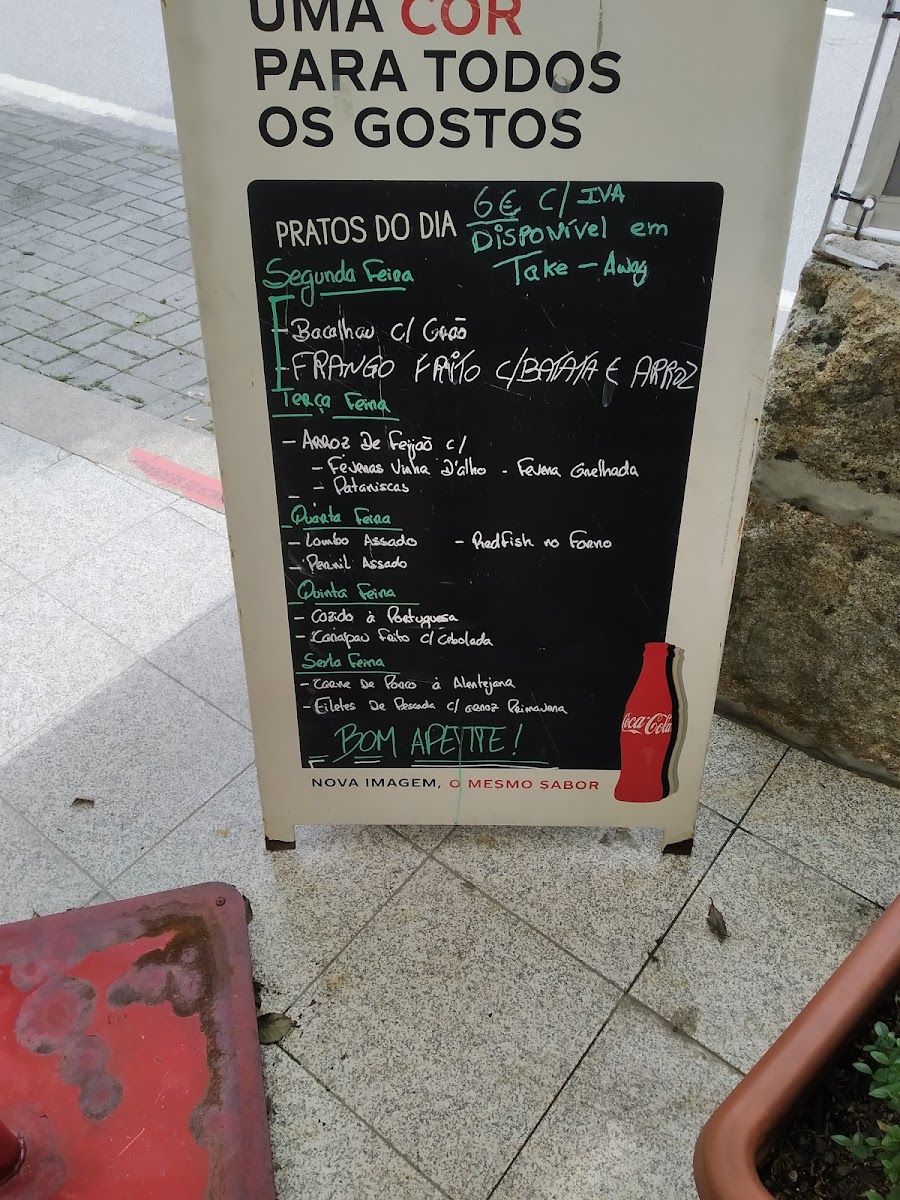 UMA COR
PARA TODOS
OS GOSTOS
PRATOS DO DIA
6€ C/ IVA
DISPONÍVEL em
Take - Away
Segunda Feira
- Bacalhau C/ Grão
- FRANGO FRITO C/BATATA E ARROZ
Terça Feira
- ARROZ De Feijão c/
- Fêveras Vinha D'alho - Fevera Grelhada
- Pataniscas
Quarta Feira
- Lombo Assado - Redfish no Forno
- Pernil Assado
Quinta Feira
- Cozido à Portuguesa
- Carapau Frito C/ Cebolada
Sexta Feira
- Carne De Porco à Alentejana
- Filetes De Pescada C/ arroz Primavera
BOM APETITE!
Coca-Cola
NOVA IMAGEM, O MESMO SABOR